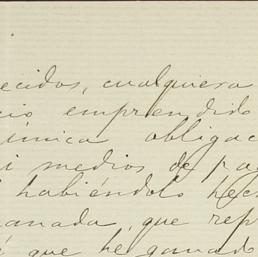 ecidos, cualquiera
cio emprendido
única obligac
i medios de pa
i habiéndolo hec
anada, que rep
i que he ganado